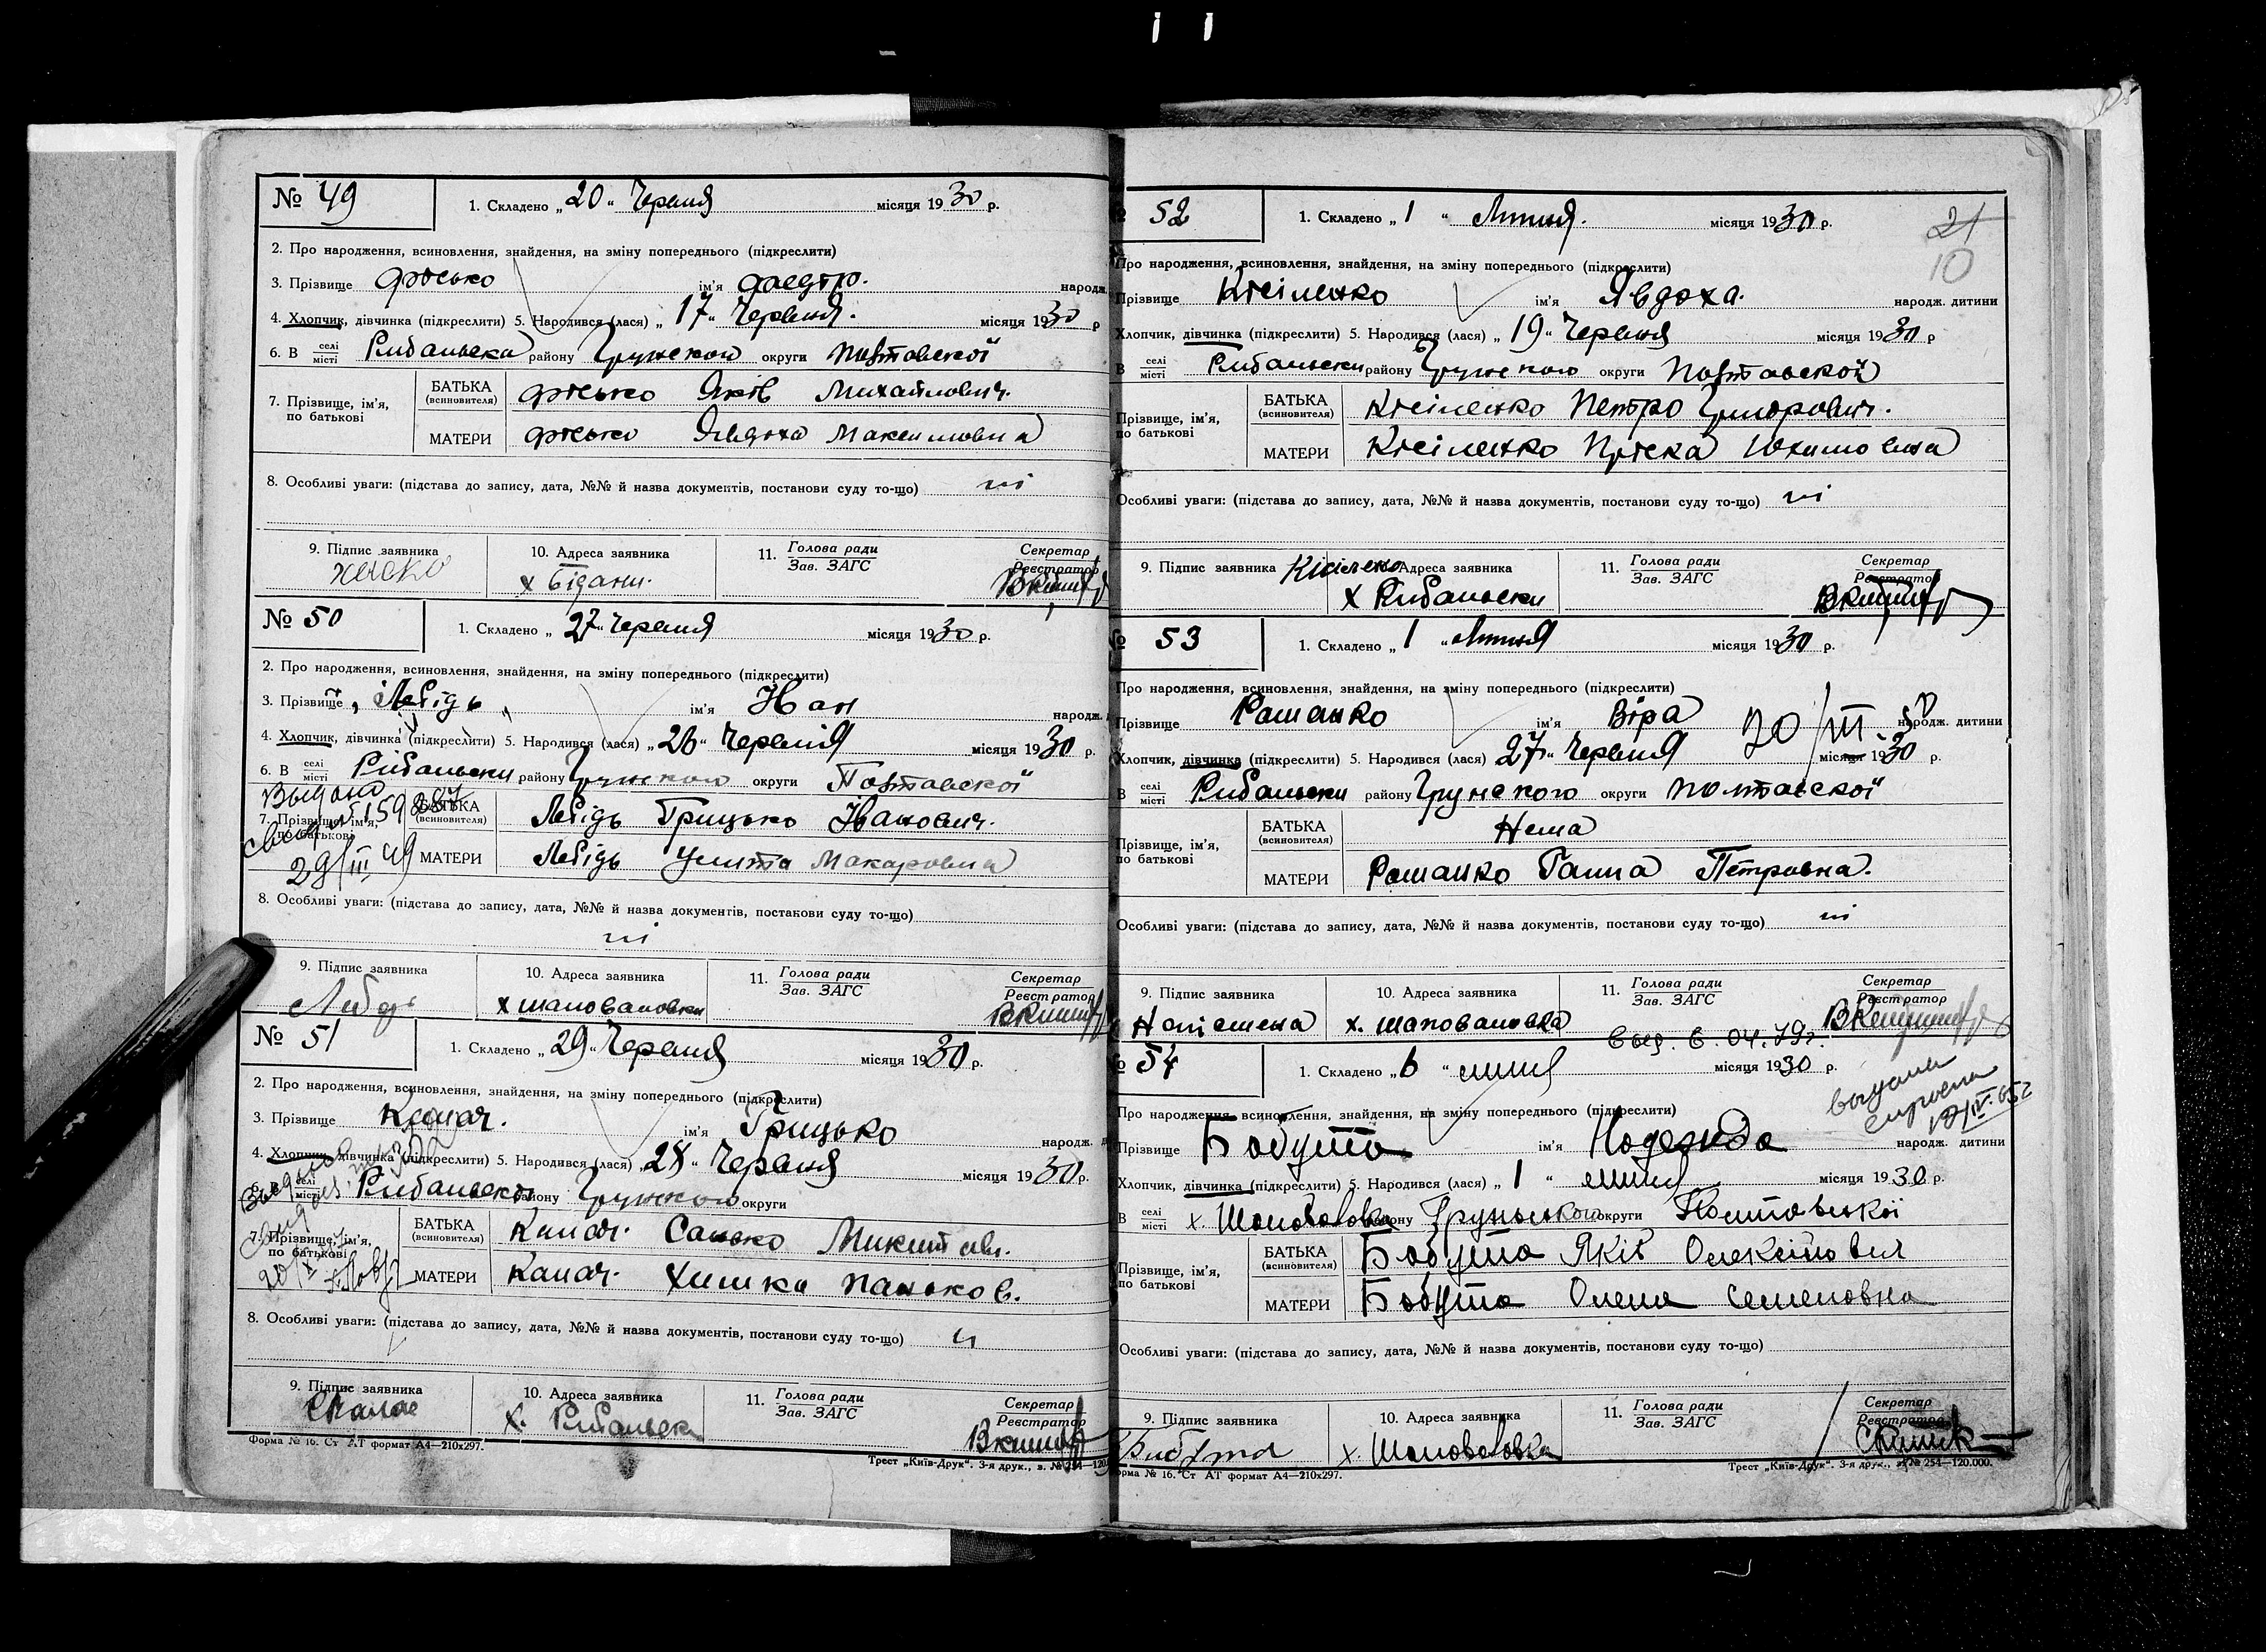 № 49
1. Складено „ 20 “ Червня місяця 19 30 р.
2. Про народження, всиновлення, знайдення, на зміну попереднього (підкреслити)
3. Прізвище ім'я народж.
4. Хлопчик, дівчинка (підкреслити) 5. Народився (лася) „ 17 “ Червня. місяця 19 30 р
6. В селі місті Рибальськ району Грунського округи Полтавської
7. Прізвище, ім'я, по батькові
БАТЬКА (всиновителя) Яків Михайлович.
МАТЕРИ Явдоха Максимовна
8. Особливі уваги: (підстава до запису, дата, №№ й назва документів, постанови суду то-що) ні
9. Підпис заявника
10. Адреса заявника х Бідани.
11. Голова ради Зав. ЗАГС
Секретар Реєстратор
№ 50
1. Складено „ 27 “ Червня місяця 19 30 р.
2. Про народження, всиновлення, знайдення, на зміну попереднього (підкреслити)
3. Прізвище „Лебідь“ ім'я Іван народж.
4. Хлопчик, дівчинка (підкреслити) 5. Народився (лася) „ 26 “ Червня місяця 19 30 р.
6. В селі місті Рибальськи району Грунського округи Полтавської
7. Прізвище, ім'я, по батькові
БАТЬКА (всиновителя) Лебідь Грицько Іванович.
МАТЕРИ Лебідь Улита Макаровна
29/III 49
8. Особливі уваги: (підстава до запису, дата, №№ й назва документів, постанови суду то-що)
ні
9. Підпис заявника Лебідь
10. Адреса заявника х Шаповаловки
11. Голова ради Зав. ЗАГС
Секретар Реєстратор
№ 51
1. Складено „ 29 “ Червня місяця 19 30 р.
2. Про народження, всиновлення, знайдення, на зміну попереднього (підкреслити)
3. Прізвище Капач. ім'я Грицько народж.
4. Хлопчик, дівчинка (підкреслити) 5. Народився (лася) „ 28 “ Червня місяця 19 30 р.
6. В селі місті Рибальськ району Грунського округи
7. Прізвище, ім'я, по батькові
БАТЬКА (всиновителя) Капач. Санько Микитов.
МАТЕРИ Капач. Химка Паньков.
8. Особливі уваги: (підстава до запису, дата, №№ й назва документів, постанови суду то-що)
9. Підпис заявника
10. Адреса заявника х. Рибальськ
11. Голова ради Зав. ЗАГС
Секретар Реєстратор
Форма № 16. Ст АТ формат А4—210х297.
Трест „Київ-Друк“. 3-я друк., з. № 254—120.
№ 52
1. Складено „ 1 “ Липня. місяця 19 30 р.
21
10
Про народження, всиновлення, знайдення, на зміну попереднього (підкреслити)
Прізвище Кісіленко ім'я Явдоха. народж. дитини
Хлопчик, дівчинка (підкреслити) 5. Народився (лася) „ 19 “ Червня місяця 19 30 р
В селі місті Рибальськи району Грунского округи Полтавскої
Прізвище, ім'я, по батькові
БАТЬКА (всиновителя) Кісіленко Петро
МАТЕРИ Кісіленко Пріска Юхимовна
Особливі уваги: (підстава до запису, дата, №№ й назва документів, постанови суду то-що) ні
9. Підпис заявника Кісіленко
Адреса заявника х Рибальськи
11. Голова ради Зав. ЗАГС
Секретар Реєстратор
№ 53
1. Складено „ 1 “ Липня місяця 19 30 р.
Про народження, всиновлення, знайдення, на зміну попереднього (підкреслити)
Прізвище Романко ім'я Віра народж. дитини
Хлопчик, дівчинка (підкреслити) 5. Народився (лася) „ 27 “ Червня місяця 19 30 р.
В селі місті Рибальськи району Грунского округи Полтавскої
Прізвище, ім'я, по батькові
БАТЬКА (всиновителя) Нема
МАТЕРИ Романко Ганна Петровна.
Особливі уваги: (підстава до запису, дата, №№ й назва документів, постанови суду то-що) ні
9. Підпис заявника Неписмена
10. Адреса заявника х. Шаповаловка
11. Голова ради Зав. ЗАГС
Секретар Реєстратор
№ 54
1. Складено „ 6 “ липня місяця 19 30 р.
Про народження, всиновлення, знайдення, на зміну попереднього (підкреслити)
Прізвище Бабута ім'я Надежда народж. дитини
Хлопчик, дівчинка (підкреслити) 5. Народився (лася) „ 1 “ липня місяця 19 30 р.
В селі місті х Шаповаловка району Груньського округи Полтавської
Прізвище, ім'я, по батькові
БАТЬКА (всиновителя) Бабута Яків Олексійович
МАТЕРИ Бабута Олена Семеновна
Особливі уваги: (підстава до запису, дата, №№ й назва документів, постанови суду то-що)
9. Підпис заявника
10. Адреса заявника х. Шаповаловка
11. Голова ради Зав. ЗАГС
Секретар Реєстратор
Форма № 16. Ст АТ формат А4—210х297.
Трест „Київ-Друк“. 3-я друк., з. № 254—120.000.